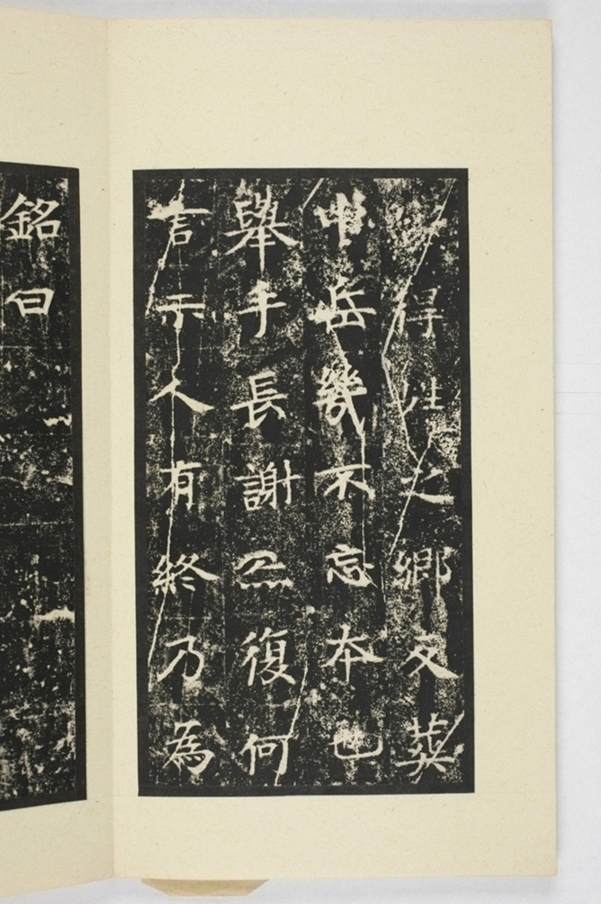 得性之鄉反葬
中岳幾不忘本也
舉手長謝亦復何
言示人有終乃為
銘曰